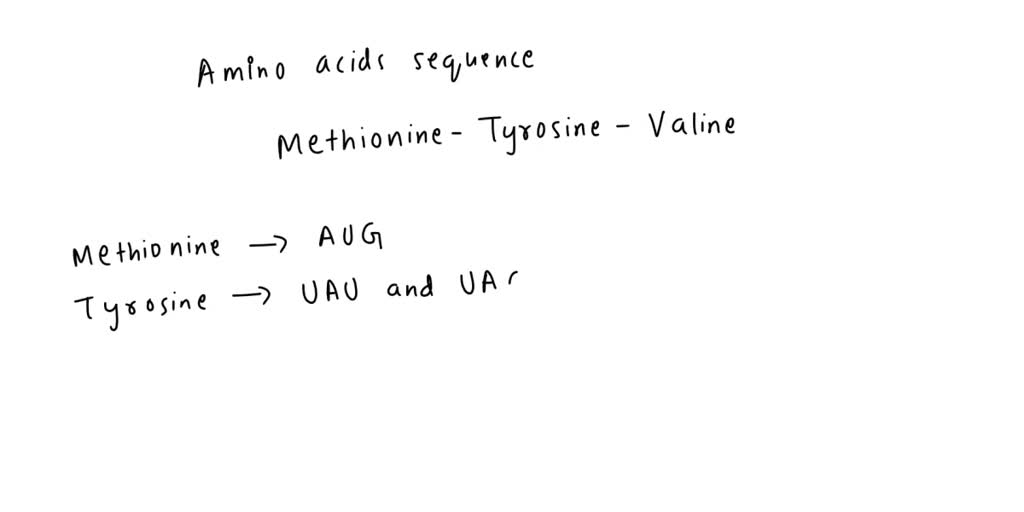 Amino acids sequence
Methionine - Tyrosine - Valine
Methionine → AUG
Tyrosine → UAU and